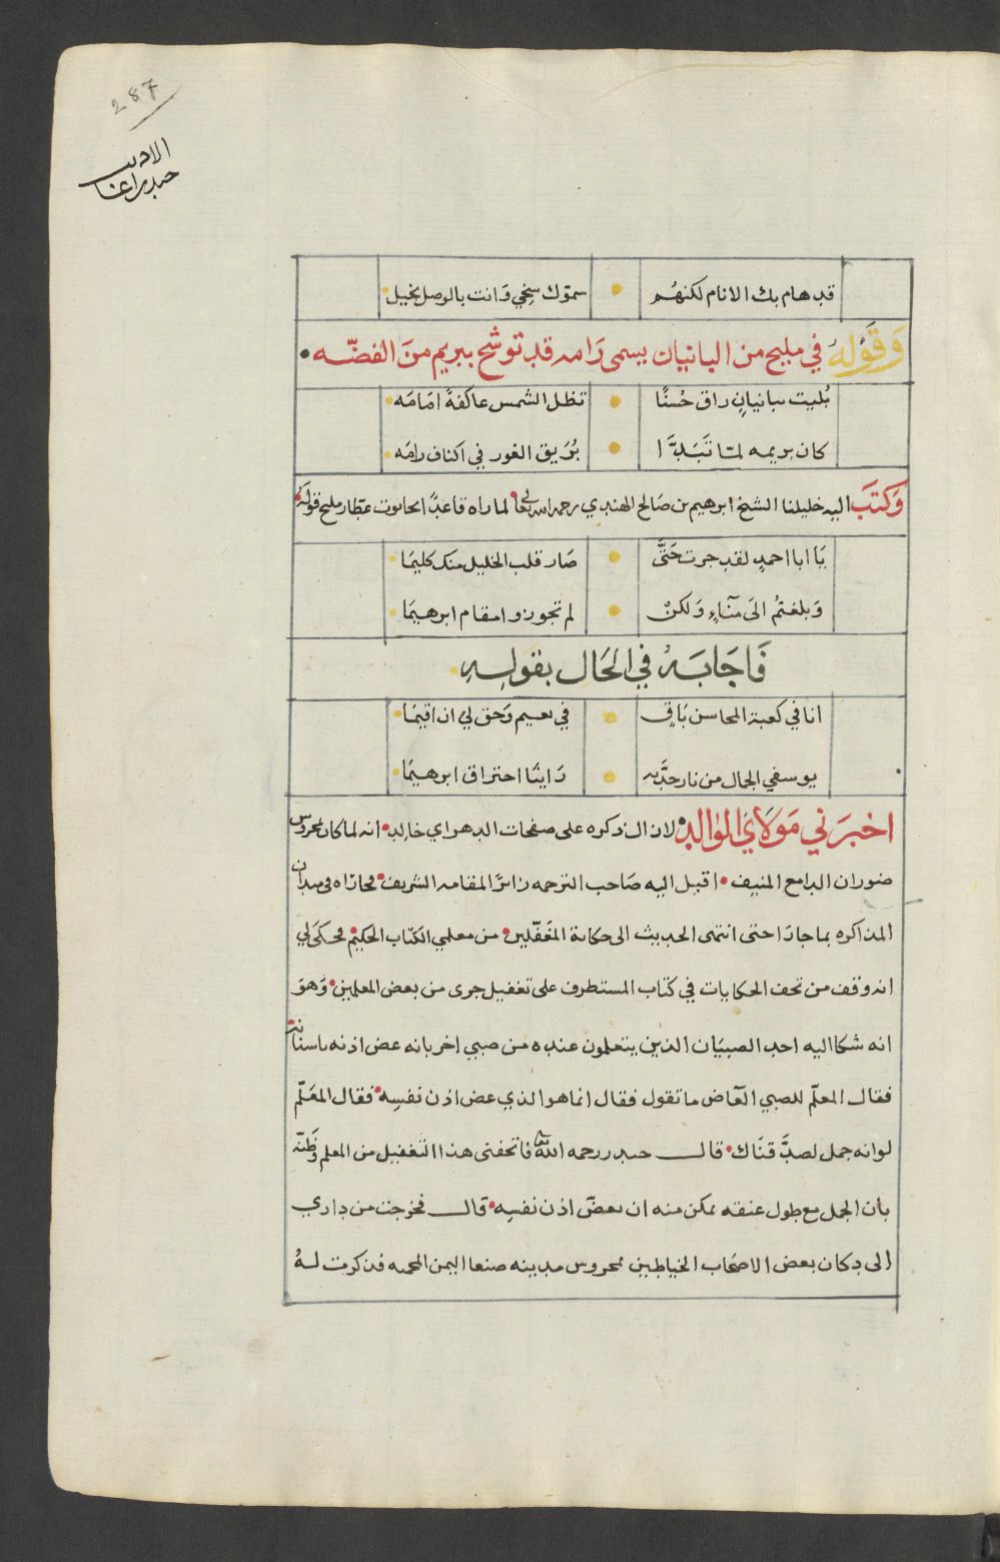 287
الاديب
حيدر اغا
قد هام بك الانام لكنهم • سموّك سخي وَانت بالوصل بخيل •
وَقَوْلهُ في مليح من البانيان يسمى رَامه قد توشّح ببريم منَ الفضّه •
بُليت ببانيانٍ راق حُسنًا • تظل الشمس عاكفةً امَامَه •
كان بريمه لمّا تَبَدَّا • بُرَيق الغور في اكناف رامَه •
وَكتَبَ اليه خليلنا الشيخ ابرهيم بن صَالح الهندي رحمه الله تعالى لما راه قاعدًا بحانوت عطّار مليح قولَه
يَا ابا احمدٍ لقد جرت حَتَّى • صَار قلب الخليل منك كليمَا •
وَبلغتمُ الىَ مَنَاءٍ وَلكنْ • لم تجوزوا مقام ابرهيمَا •
فَاجَابَهُ في الحَال بقولهِ •
انا في كعبة المحاسن بَاقٍ • في نعيم وَحق لي ان اقيمَا •
يوسفي الجمال من نار خدَّيه • رَاينَا احتراق ابرهيمَا •
اخبرَني مَوْلاَيَ الوالد • لازال ذكره على صفحات الدهر اي خالد • انه لما كان بمحروس
ضوران الدامغ المنيف • اقبل اليه صَاحب الترجمه زائرًا لمقامه الشريف • فجارَاه في ميدان
المذاكره بما جارَا حتى انتهى الحديث الى حكاية المغَفّلين • من معلمي الكتاب الحكيم • فحكىَ لي
انه وقف من تحف الحكايات في كتاب المستطرف على تغفيل جرى من بعض المعلمين • وَهوَ
انه شكا اليه احد الصبيَان الذين يتعلمون عنده من صبي اخر بانه عض اذنه باسنانه
فقال المعلّم للصبي العَاض ما تقول فقال انما هو الذي عض اذن نفسِه • فقال المعَلّم
لو انه جمل لصبَّ قنَاك • قال حيدر رحمه الله فاتحفني هذا التغفيل من المعلم وَظَنّه
بان الجمل مع طول عنقه يمكن منه ان يعضّ اذن نفسِه • قال فخرجت من داري
الى دكان بعض الاصحَاب الخياطين بمحروس مدينه صنعا اليمن المحميه فذكرت لهُ